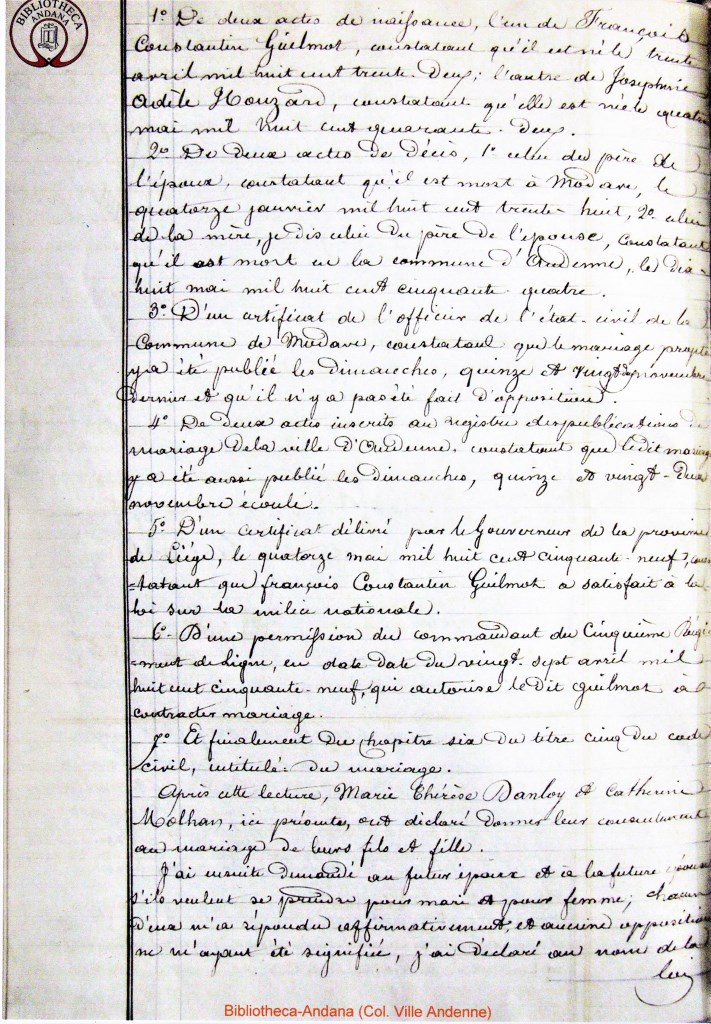 BIBLIOTHECA
ANDANA
1º De deux actes de naissance, l'un de François
Constantin Guilmot, constatant qu'il est né le trente
avril mil huit cent trente-deux; l'autre de Joséphine
Adèle Houzard, constatant qu'elle est née le quatre
mai mil huit cent quarante-deux.
2º De deux actes de décès, 1º celui du père de
l'époux, constatant qu'il est mort à Modave, le
quatorze janvier mil huit cent trente-huit, 2º celui
de la mère, je dis celui du père de l'épouse, constatant
qu'il est mort en la commune d'Andenne, le dix-
huit mai mil huit cent cinquante-quatre.
3º D'un certificat de l'officier de l'état-civil de la
Commune de Modave, constatant que le mariage projeté
y a été publié les Dimanches, quinze et vingt-deux novembre
dernier et qu'il n'y a pas été fait d'opposition.
4º De deux actes inscrits au registre des publications de
mariage de la ville d'Andenne, constatant que le dit mariage
y a été aussi publié les Dimanches, quinze et vingt-deux
novembre écoulé.
5º D'un certificat délivré par le Gouverneur de la province
de Liége, le quatorze mai mil huit cent cinquante-neuf, cons-
=tatant que François Constantin Guilmot a satisfait à la
loi sur la milice nationale.
6º D'une permission du commandant du Cinquième Régi-
=ment de Ligne, en date date du vingt-sept avril mil
huit cent cinquante-neuf, qui autorise le dit Guilmot à
contracter mariage.
7º Et finalement du chapitre six du titre cinq du code
civil, intitulé: du mariage.
Après cette lecture, Marie Thérèse Danloy et Catherine
Molhan, ici présentes, ont déclaré donner leur consentement
au mariage de leurs fils et fille.
J'ai ensuite demandé au futur époux et à la future épouse
s'ils veulent se prendre pour mari et pour femme; chacun
d'eux m'a répondu affirmativement, et aucune opposition
ne m'ayant été signifiée, j'ai déclaré au nom de la
loi
Bibliotheca-Andana (Col. Ville Andenne)